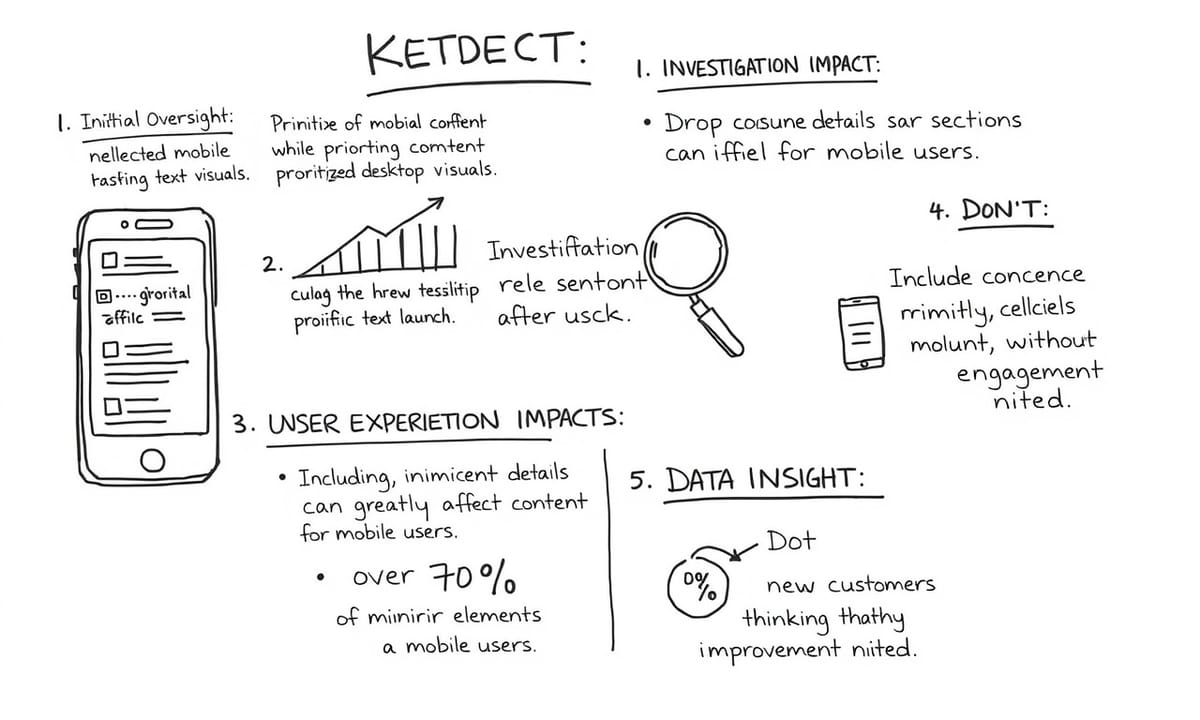 KETDECT:
1. Initial Oversight:
nellected mobile
tasting text visuals.
Prinitize of mobial corffent
while priorting comtent
proritized desktop visuals.
1. INVESTIGATION IMPACT:
• Drop cosune details sar sections
can iffiel for mobile users.
grorital
2.
culag the hrew tesslitip
proiific text launch.
Investiffation
rele sentont
after usck.
4. DON'T:
Include concence
rrimitly, cellciels
molunt, without
engagement
nited.
3. UNSER EXPERIETION IMPACTS:
• Including, inimicent details
can greatly affect content
for mobile users.
• over 70%
of minirir elements
a mobile users.
5. DATA INSIGHT:
Dot
0%
new customers
thinking thathy
improvement niited.